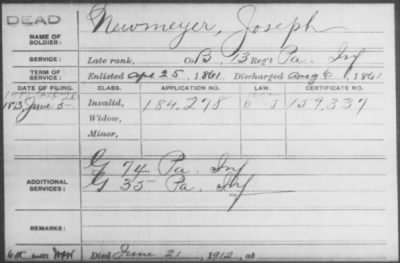 DEAD
NAME OF SOLDIER: Newmeyer, Joseph
SERVICE: Late rank, Co B, 13 Reg't Pa. Inf
TERM OF SERVICE: Enlisted Apr 25, 1861 Discharged Aug 6, 1861
DATE OF FILING. CLASS. APPLICATION NO. LAW. CERTIFICATE NO.
1873 June 5 Invalid, 184,278 159,337
Widow,
Minor,
ADDITIONAL SERVICES: G 74 Pa. Inf
G 35 Pa. Inf
REMARKS:
Died June 21, 1912, at